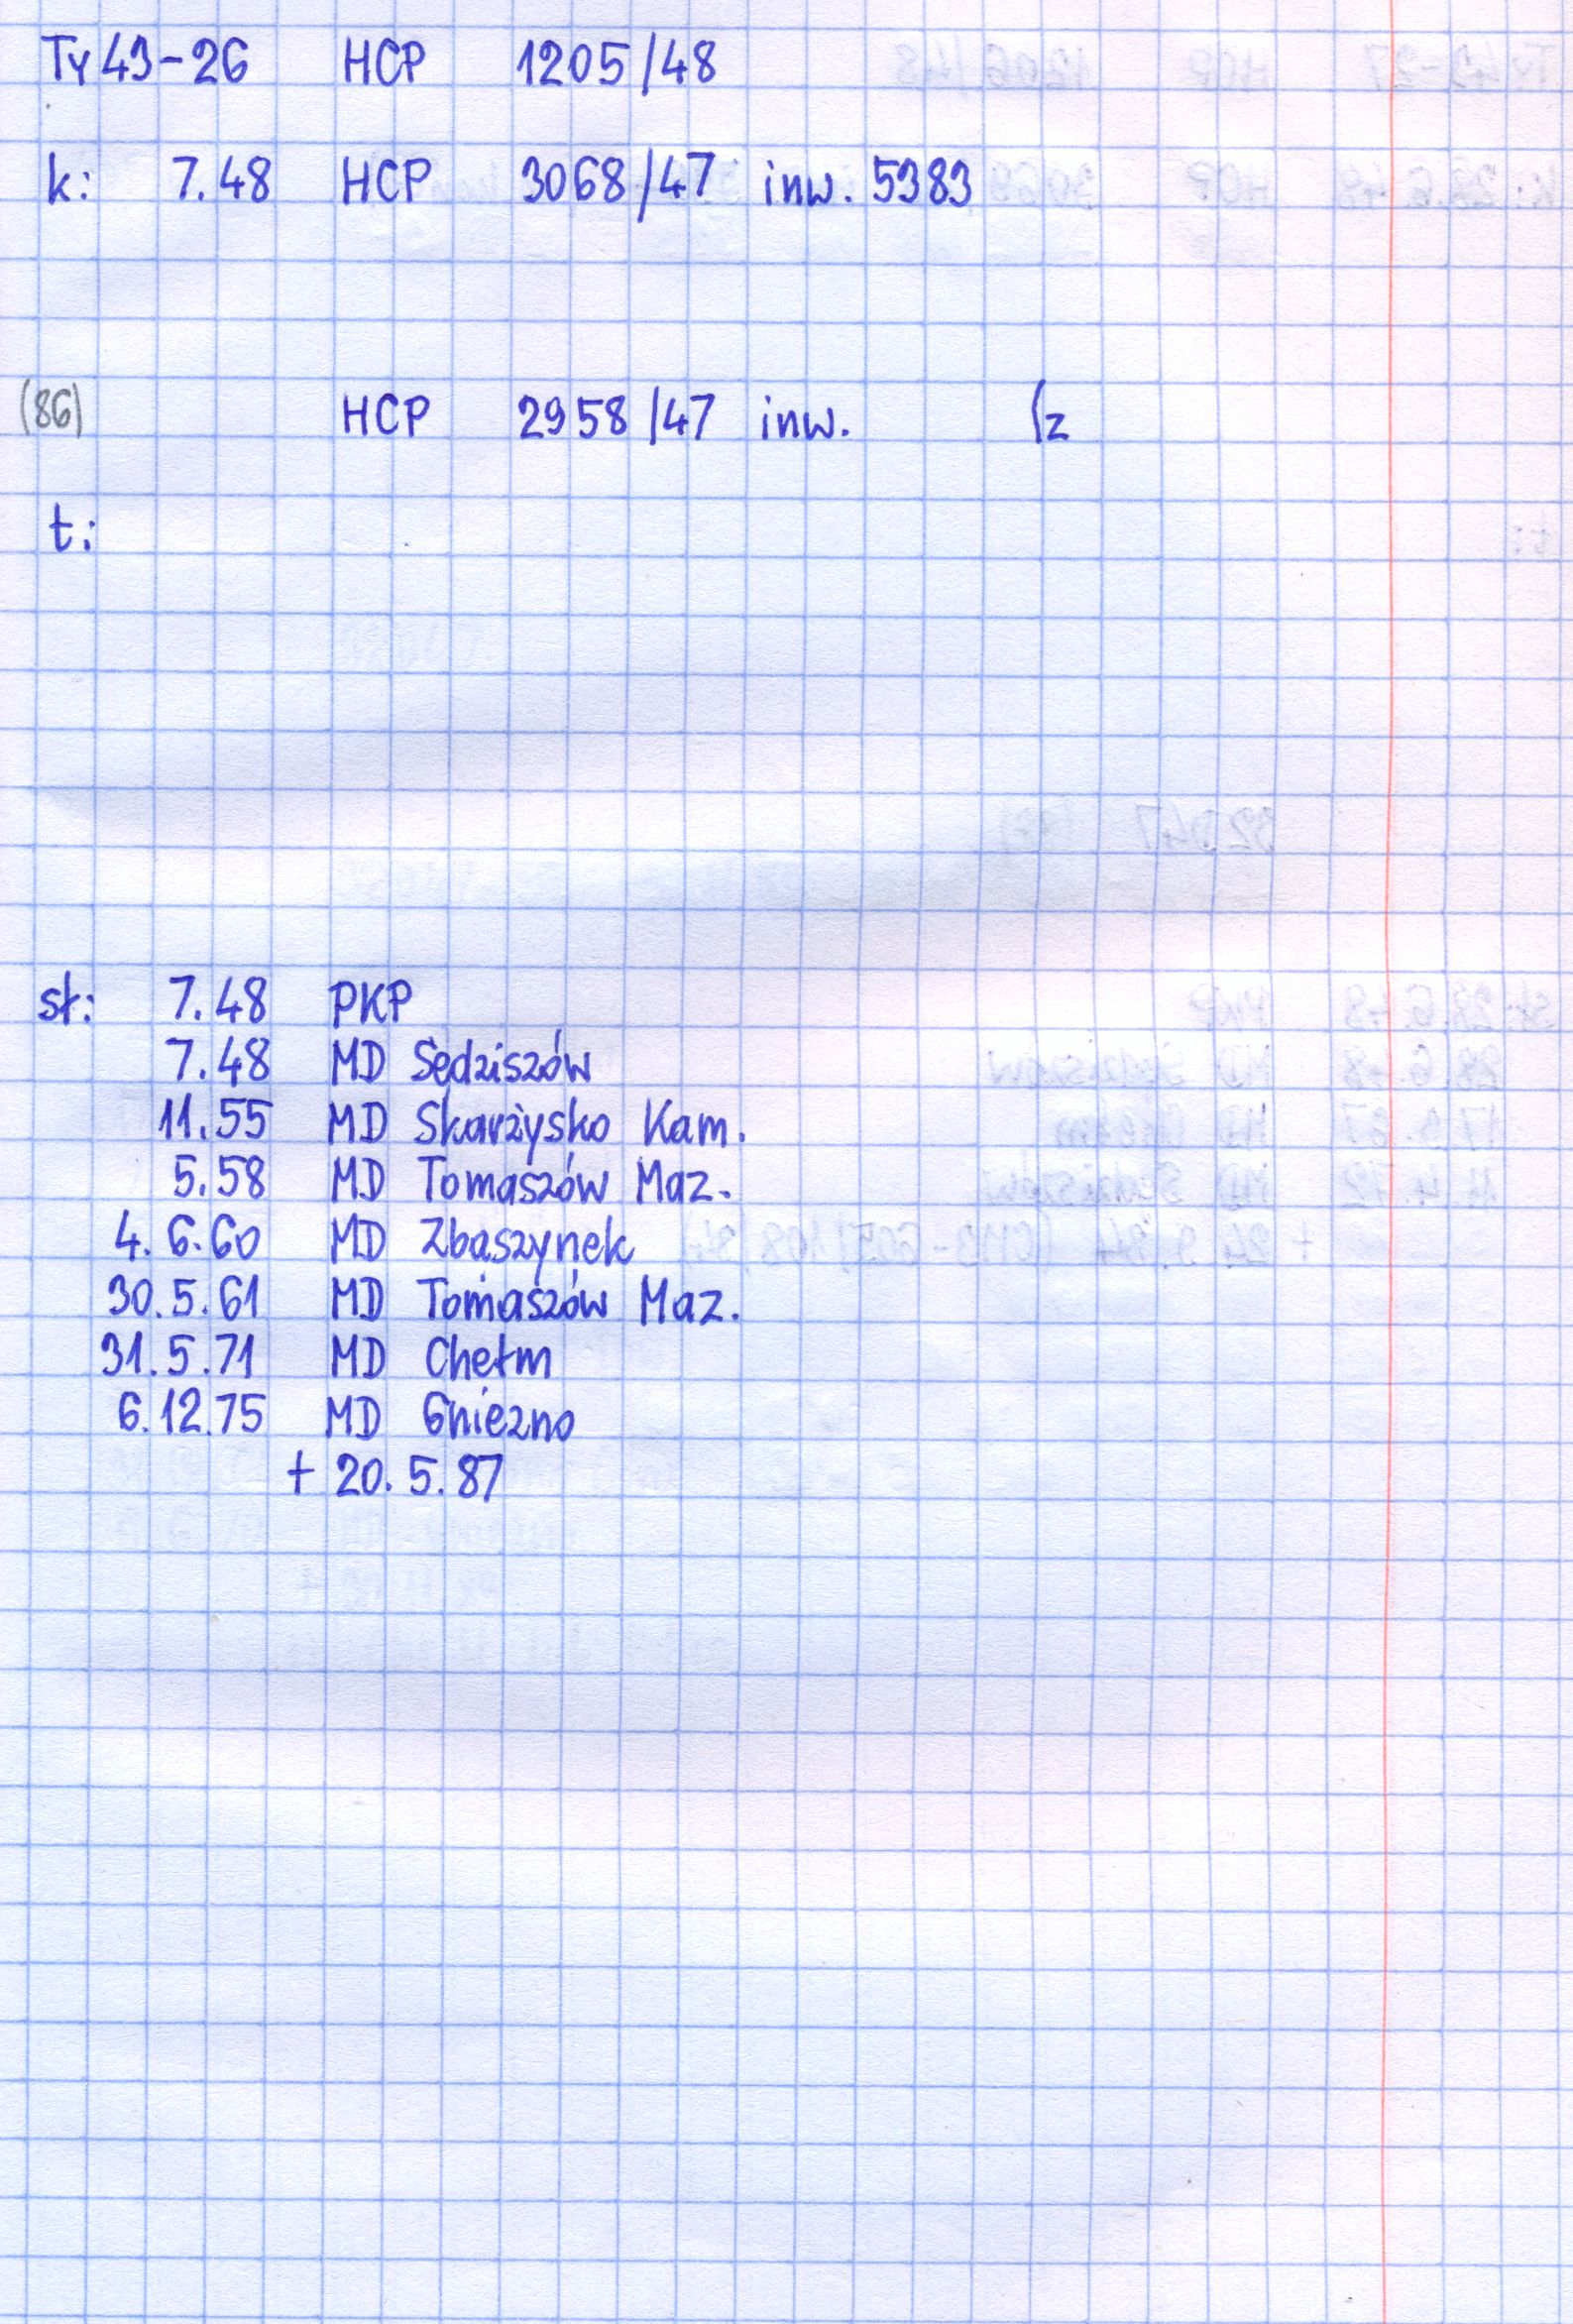 Ty43-26 HCP 1205/48
k: 7.48 HCP 3068/47 inw. 5383
(86) HCP 2958/47 inw. (z
t:
st: 7.48 PKP
7.48 MD Sędziszów
11.55 MD Skarżysko Kam.
5.58 MD Tomaszów Maz.
4.6.60 MD Zbąszynek
30.5.61 MD Tomaszów Maz.
31.5.71 MD Chełm
6.12.75 MD Gniezno
+ 20.5.87